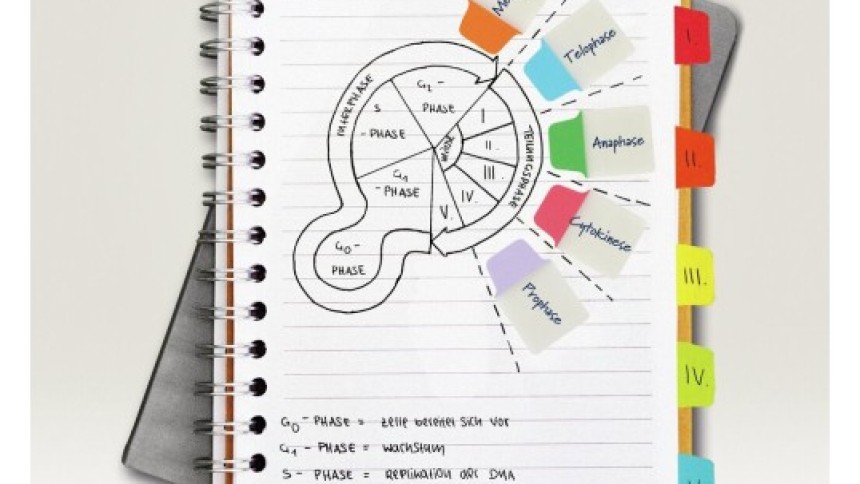 Me
Telophase
Anaphase
Cytokinese
Prophase
INTERPHASE
G2 -
PHASE
S
- PHASE
G1
- PHASE
G0 -
PHASE
MITOSE
TEILUNGSPHASE
I
II.
III.
IV.
V.
I.
II.
III.
IV.
G0 - PHASE = Zelle bereitet sich vor
G1 - PHASE = Wachstum
S - PHASE = Replikation der DNA